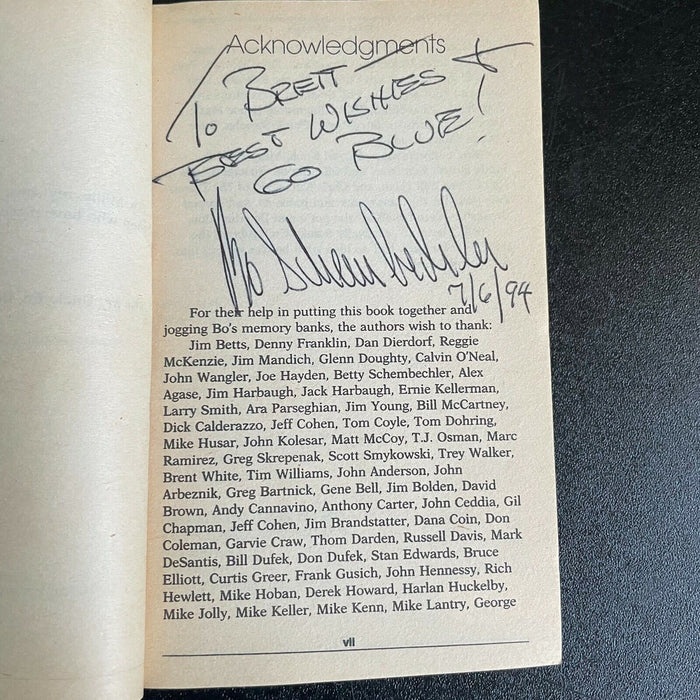 Acknowledgments
To BRETT
BEST WISHES &
GO BLUE!
Bo Schembechler
7/6/94
For their help in putting this book together and
jogging Bo's memory banks, the authors wish to thank:
Jim Betts, Denny Franklin, Dan Dierdorf, Reggie
McKenzie, Jim Mandich, Glenn Doughty, Calvin O'Neal,
John Wangler, Joe Hayden, Betty Schembechler, Alex
Agase, Jim Harbaugh, Jack Harbaugh, Ernie Kellerman,
Larry Smith, Ara Parseghian, Jim Young, Bill McCartney,
Dick Calderazzo, Jeff Cohen, Tom Coyle, Tom Dohring,
Mike Husar, John Kolesar, Matt McCoy, T.J. Osman, Marc
Ramirez, Greg Skrepenak, Scott Smykowski, Trey Walker,
Brent White, Tim Williams, John Anderson, John
Arbeznik, Greg Bartnick, Gene Bell, Jim Bolden, David
Brown, Andy Cannavino, Anthony Carter, John Ceddia, Gil
Chapman, Jeff Cohen, Jim Brandstatter, Dana Coin, Don
Coleman, Garvie Craw, Thom Darden, Russell Davis, Mark
DeSantis, Bill Dufek, Don Dufek, Stan Edwards, Bruce
Elliott, Curtis Greer, Frank Gusich, John Hennessy, Rich
Hewlett, Mike Hoban, Derek Howard, Harlan Huckelby,
Mike Jolly, Mike Keller, Mike Kenn, Mike Lantry, George
vii